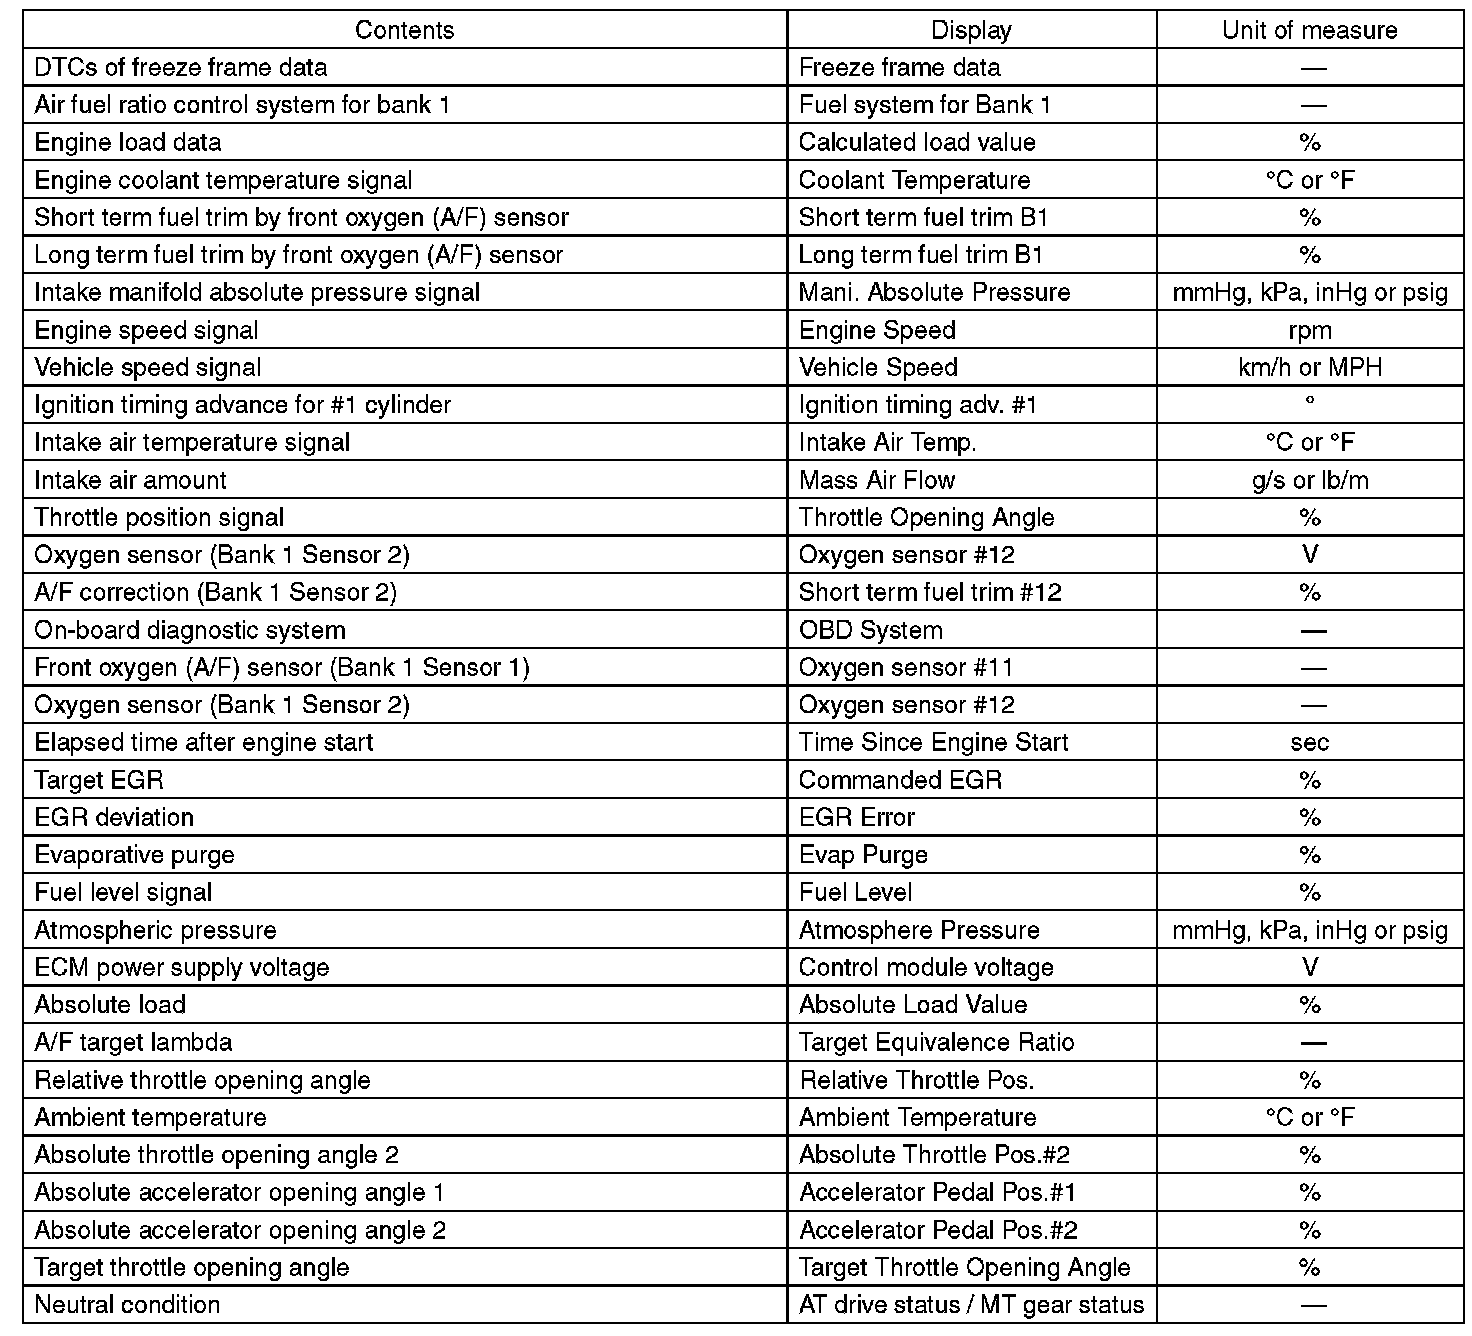 Contents Display Unit of measure
DTCs of freeze frame data Freeze frame data —
Air fuel ratio control system for bank 1 Fuel system for Bank 1 —
Engine load data Calculated load value %
Engine coolant temperature signal Coolant Temperature °C or °F
Short term fuel trim by front oxygen (A/F) sensor Short term fuel trim B1 %
Long term fuel trim by front oxygen (A/F) sensor Long term fuel trim B1 %
Intake manifold absolute pressure signal Mani. Absolute Pressure mmHg, kPa, inHg or psig
Engine speed signal Engine Speed rpm
Vehicle speed signal Vehicle Speed km/h or MPH
Ignition timing advance for #1 cylinder Ignition timing adv. #1 °
Intake air temperature signal Intake Air Temp. °C or °F
Intake air amount Mass Air Flow g/s or lb/m
Throttle position signal Throttle Opening Angle %
Oxygen sensor (Bank 1 Sensor 2) Oxygen sensor #12 V
A/F correction (Bank 1 Sensor 2) Short term fuel trim #12 %
On-board diagnostic system OBD System —
Front oxygen (A/F) sensor (Bank 1 Sensor 1) Oxygen sensor #11 —
Oxygen sensor (Bank 1 Sensor 2) Oxygen sensor #12 —
Elapsed time after engine start Time Since Engine Start sec
Target EGR Commanded EGR %
EGR deviation EGR Error %
Evaporative purge Evap Purge %
Fuel level signal Fuel Level %
Atmospheric pressure Atmosphere Pressure mmHg, kPa, inHg or psig
ECM power supply voltage Control module voltage V
Absolute load Absolute Load Value %
A/F target lambda Target Equivalence Ratio —
Relative throttle opening angle Relative Throttle Pos. %
Ambient temperature Ambient Temperature °C or °F
Absolute throttle opening angle 2 Absolute Throttle Pos.#2 %
Absolute accelerator opening angle 1 Accelerator Pedal Pos.#1 %
Absolute accelerator opening angle 2 Accelerator Pedal Pos.#2 %
Target throttle opening angle Target Throttle Opening Angle %
Neutral condition AT drive status / MT gear status —